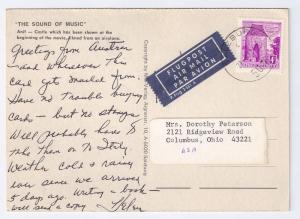 "THE SOUND OF MUSIC"
Anif - Castle which has been shown at the
beginning of the movie, filmed from an airplane.
Greetings from Austria
- and wherever this
card gets mailed from.
Have no trouble buying
cards - but no stamps
Will probably have to
take them to Italy.
Weather cold & rainy
ever since we arrived
5 days ago. Writing a book -
will send a copy
FLUGPOST
AIR MAIL
PAR AVION
Mrs. Dorothy Peterson
2121 Ridgeview Road
Columbus, Ohio 43221
USA